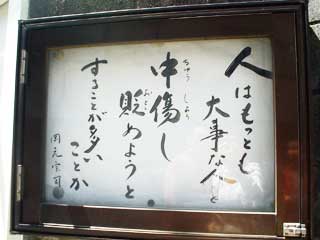 人はもっとも
大事な人を
ちゅうしょう
中傷し
おとし
貶めようと
することが多い
ことか